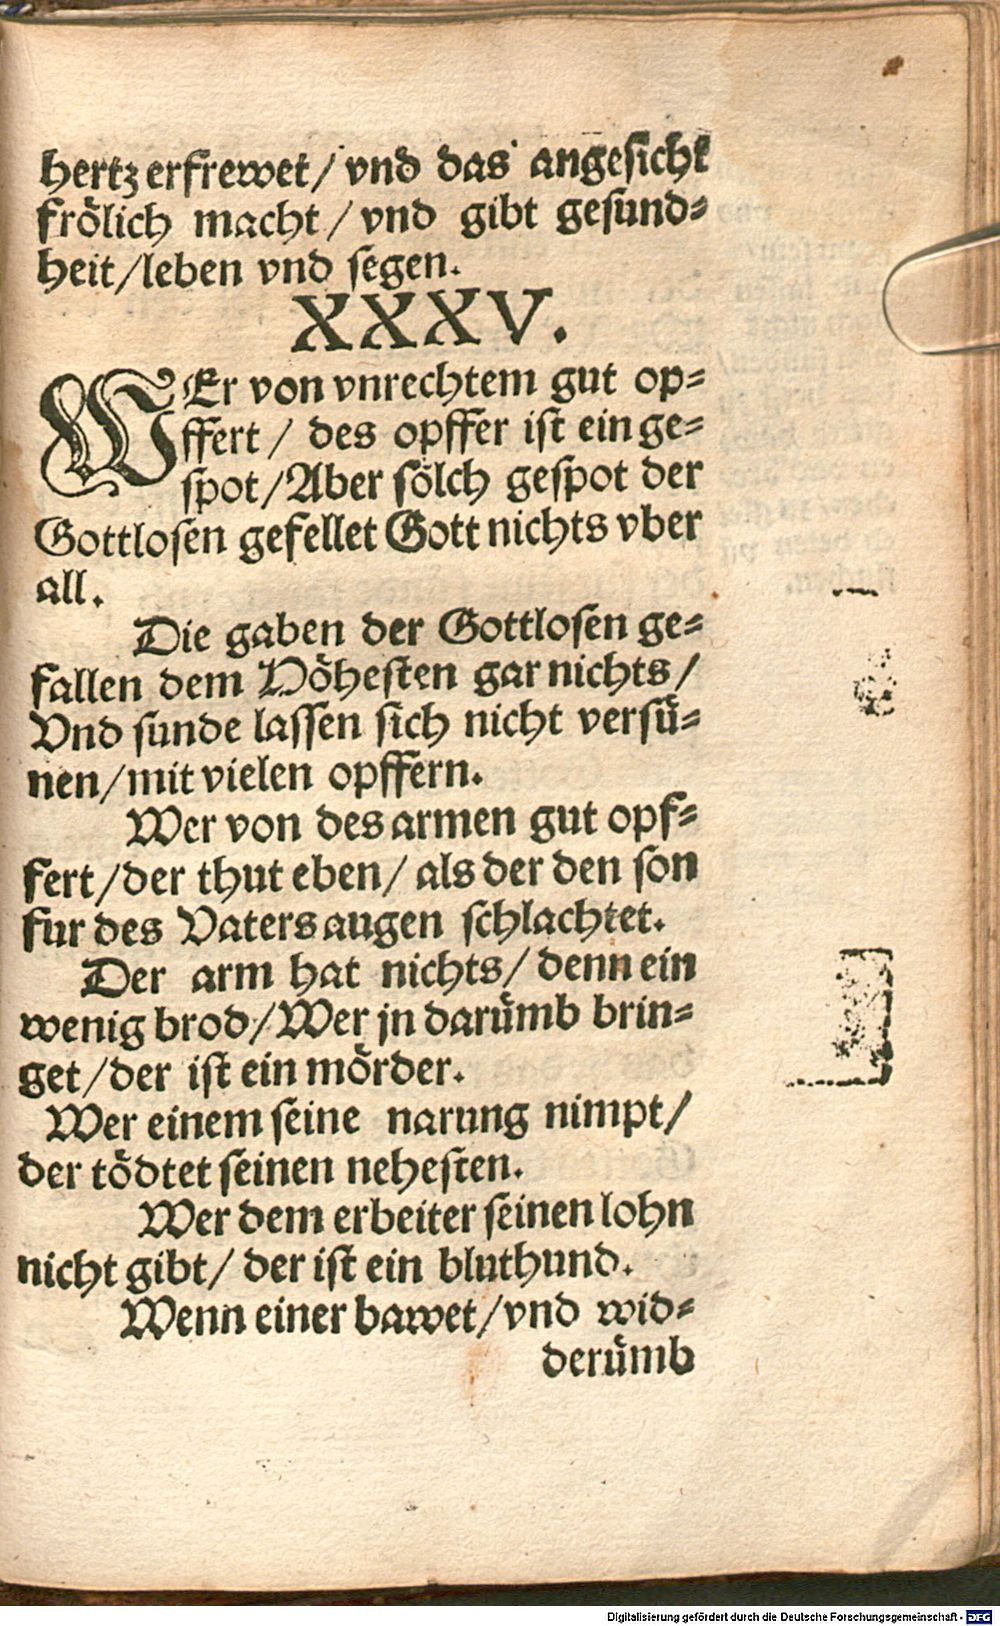 hertz erfrewet / vnd das angesicht
frölich macht / vnd gibt gesund⸗
heit / leben vnd segen.
XXXV.
WEr von vnrechtem gut op⸗
ffert / des opffer ist ein ge⸗
spot / Aber sölch gespot der
Gottlosen gefellet Gott nichts vber
all.
Die gaben der Gottlosen ge⸗
fallen dem Höhesten gar nichts /
Vnd sunde lassen sich nicht versü⸗
nen / mit vielen opffern.
Wer von des armen gut opf⸗
fert / der thut eben / als der den son
fur des Vaters augen schlachtet.
Der arm hat nichts / denn ein
wenig brod / Wer jn darümb brin⸗
get / der ist ein mörder.
Wer einem seine narung nimpt /
der tödtet seinen nehesten.
Wer dem erbeiter seinen lohn
nicht gibt / der ist ein bluthund.
Wenn einer bawet / vnd wid⸗
derümb
Digitalisierung gefördert durch die Deutsche Forschungsgemeinschaft - DFG